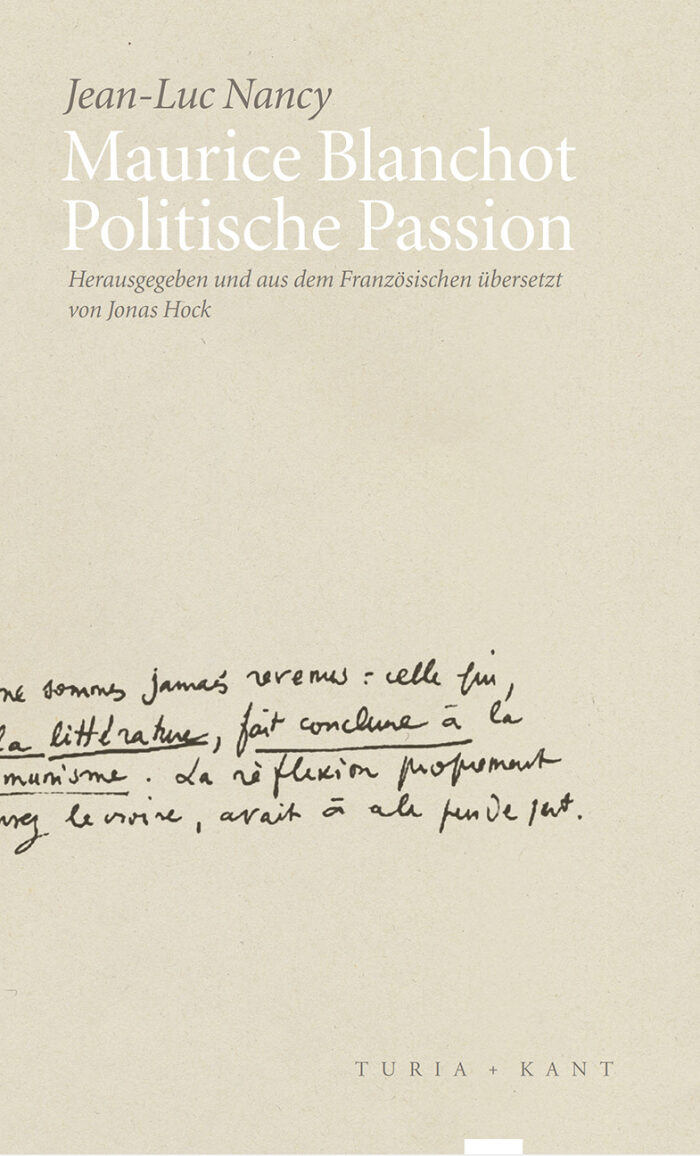 Jean-Luc Nancy
Maurice Blanchot
Politische Passion
Herausgegeben und aus dem Französischen übersetzt
von Jonas Hock
ne sommes jamais revenus : celle qui,
la littérature, fait conclure à la
munisme. La réflexion proprement
le croire, avait à
TURIA + KANT